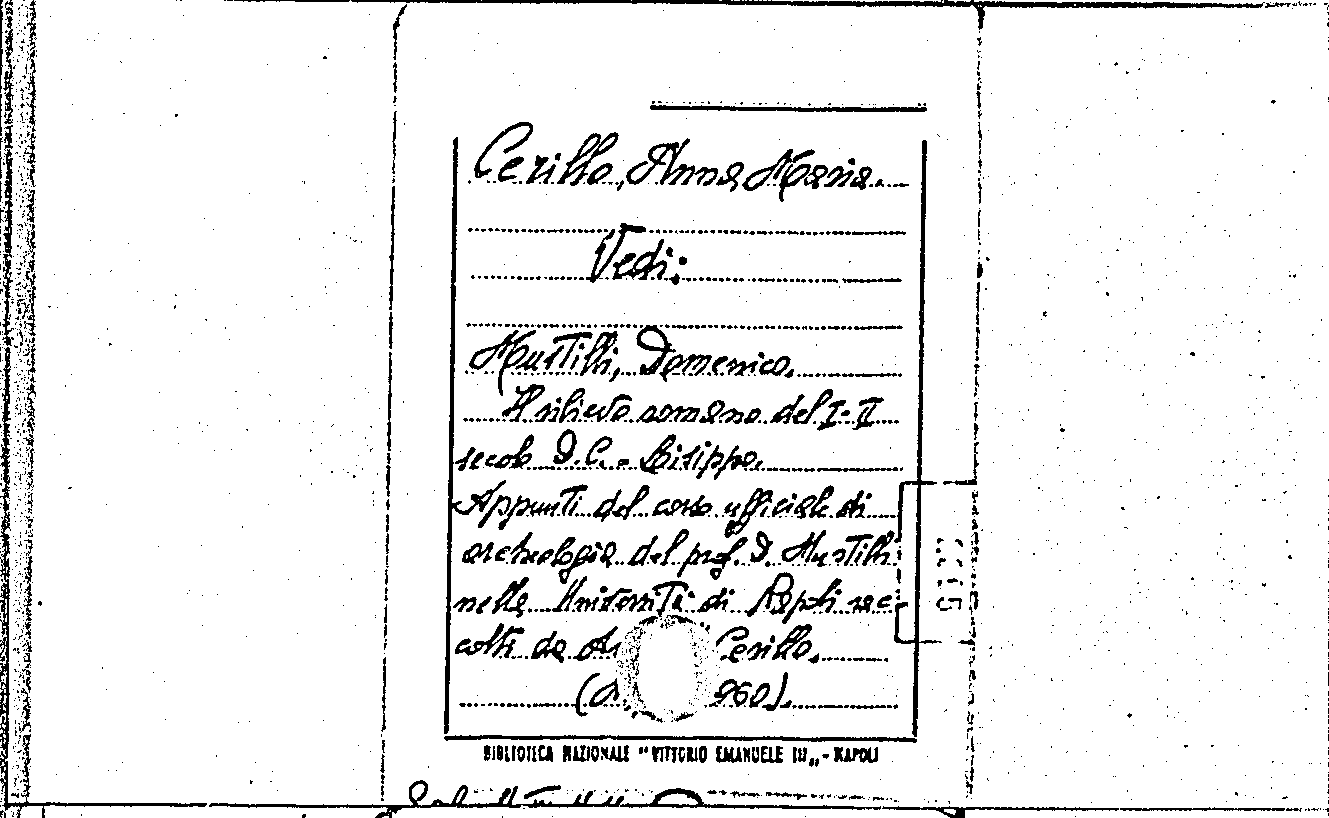 Cerillo, Anna Maria.
Vedi:
Mustilli, Domenico.
Il rilievo romano del I-II
secolo D.C. - Lisippo.
Appunti del corso ufficiale di
archeologia del prof. D. Mustilli
nella Università di Napoli rac
colti da Cerillo.
960).
BIBLIOTECA NAZIONALE "VITTORIO EMANUELE III„ - NAPOLI